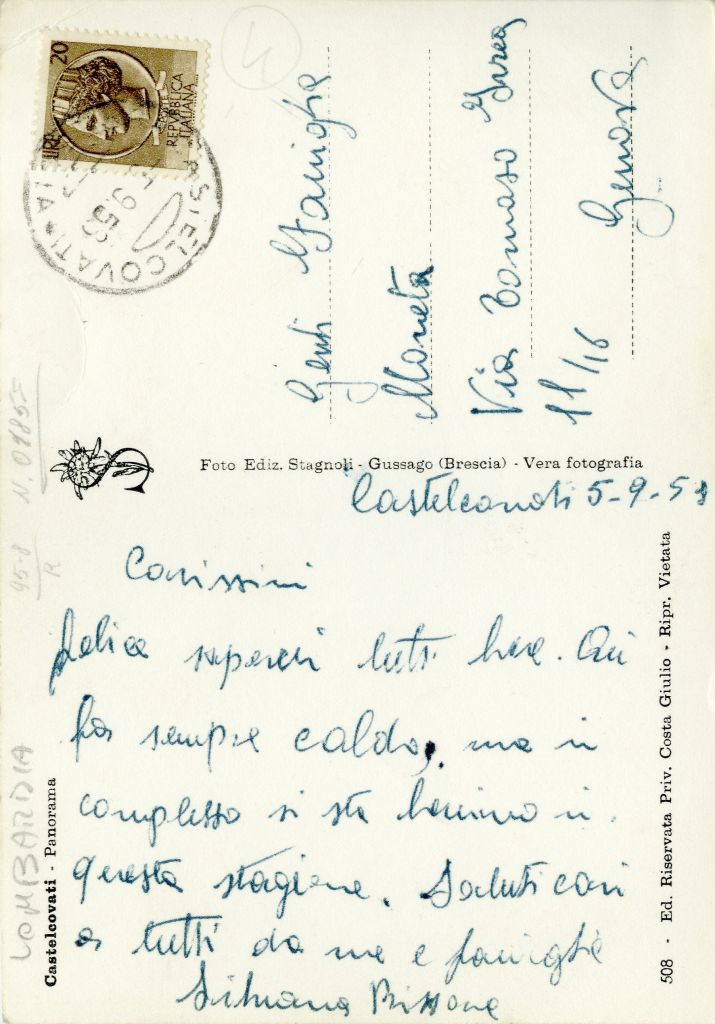 LIRE 20
POSTE
REPVBBLICA
ITALIANA
CASTELCOVATI
Gent. Famiglia
Moneta
Via Tomaso
11/16
Genova
Foto Ediz. Stagnoli - Gussago (Brescia) - Vera fotografia
Castelcovati 5-9-58
Carissimi
felice sapervi tutti bene. Qui
fa sempre caldo, ma in
complesso si sta benino in
questa stagione. Saluti cari
a tutti da me e famiglia
Silvana
Castelcovati - Panorama
508 - Ed. Riservata Priv. Costa Giulio - Ripr. Vietata
LOMBARDIA
95-8
R